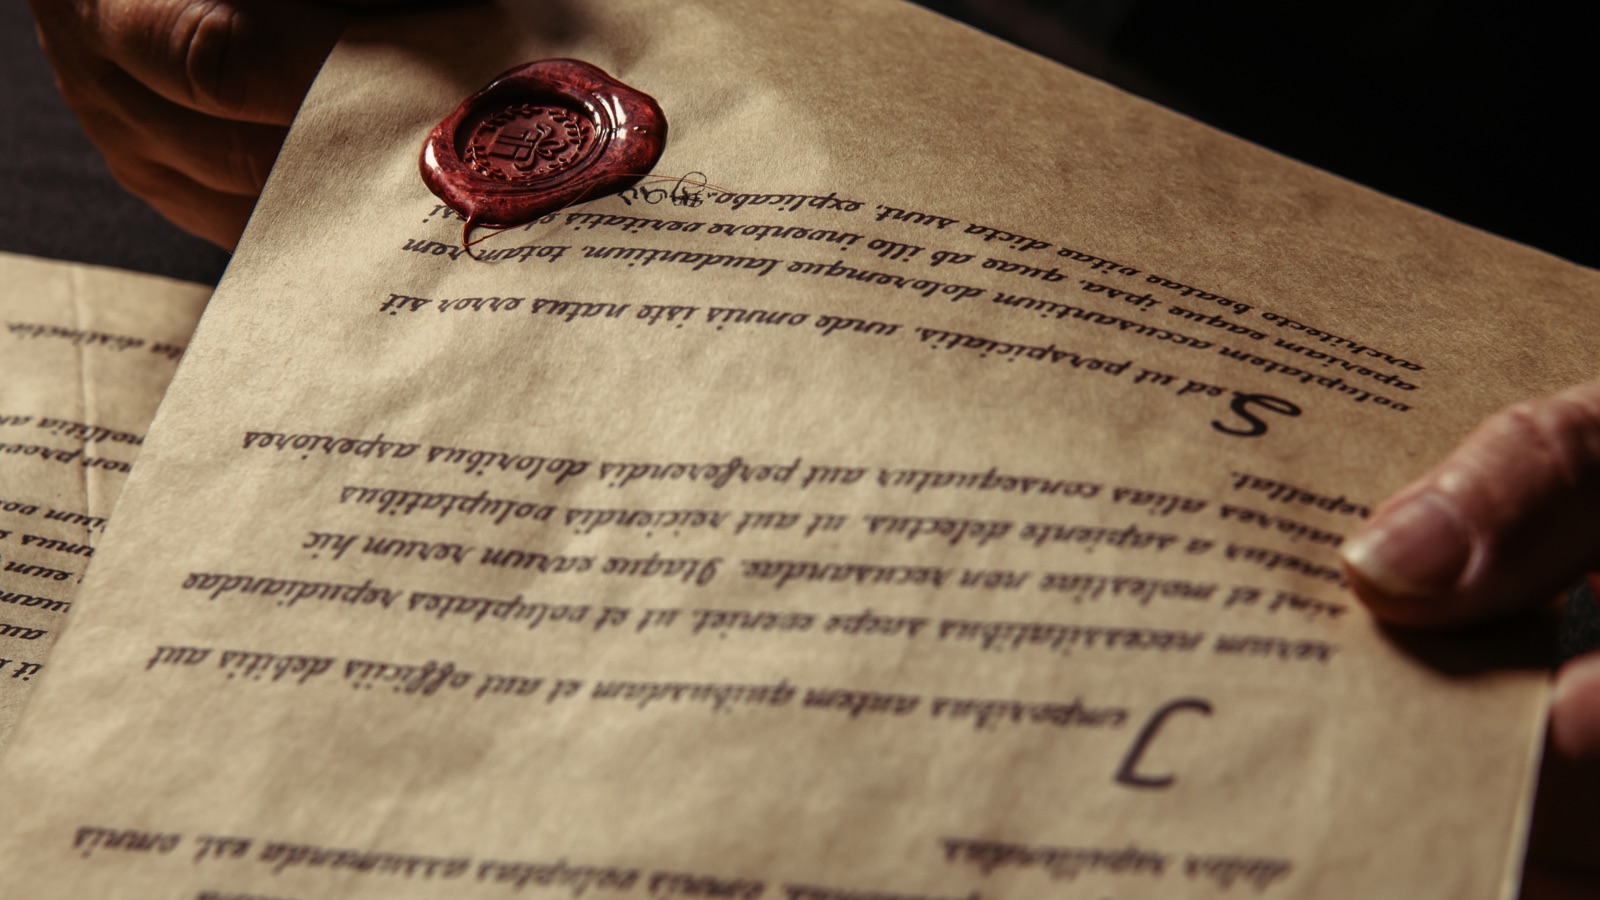 omnis voluptas assumenda est, omnis
dolor repellendus.
Temporibus autem quibusdam et aut officiis debitis aut
rerum necessitatibus saepe eveniet, ut et voluptates repudiandae
sint et molestiae non recusandae. Itaque earum rerum hic
a sapiente delectus, ut aut reiciendis voluptatibus
alias consequatur aut perferendis doloribus asperiores
repellat.
Sed ut perspiciatis, unde omnis iste natus error sit
voluptatem accusantium doloremque laudantium, totam rem
aperiam eaque ipsa, quae ab illo inventore veritatis et
architecto beatae vitae dicta sunt, explicabo.